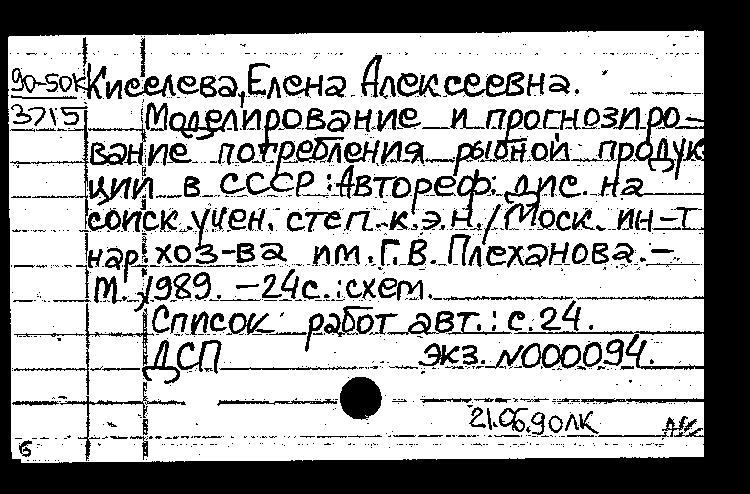 90-50К Киселева, Елена Алексеевна.
3715 Моделирование и прогнозиро-
вание потребления рыбной продук
ции в СССР : Автореф. дис. на
соиск. учен. степ. к. э. н. / Моск. ин-т
нар. хоз-ва им. Г. В. Плеханова. –
М., 1989. – 24 с. : схем.
Список работ авт. : с. 24.
ДСП экз. N000094.
21.06.90 ЛК
б